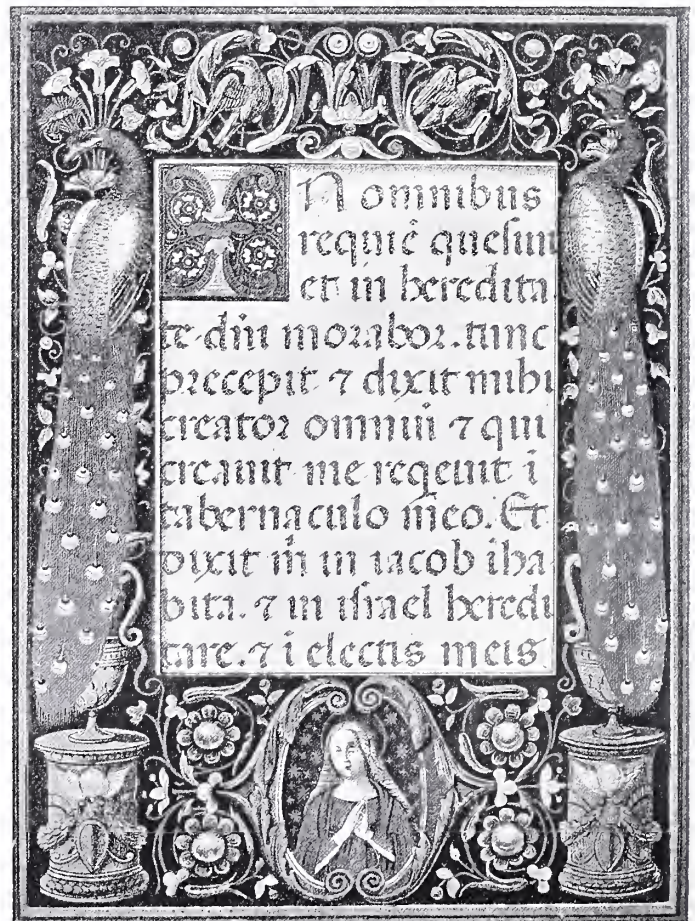 IN omnibus
requiē quesiui
et in heredita
te dñi morabor. tunc
precepit ⁊ dixit mihi
creator omniū ⁊ qui
creauit me reqeuit ī
tabernaculo meo. Et
dixit m̄ in iacob iha
bita. ⁊ in israel heredi
tare. ⁊ ī electis meis